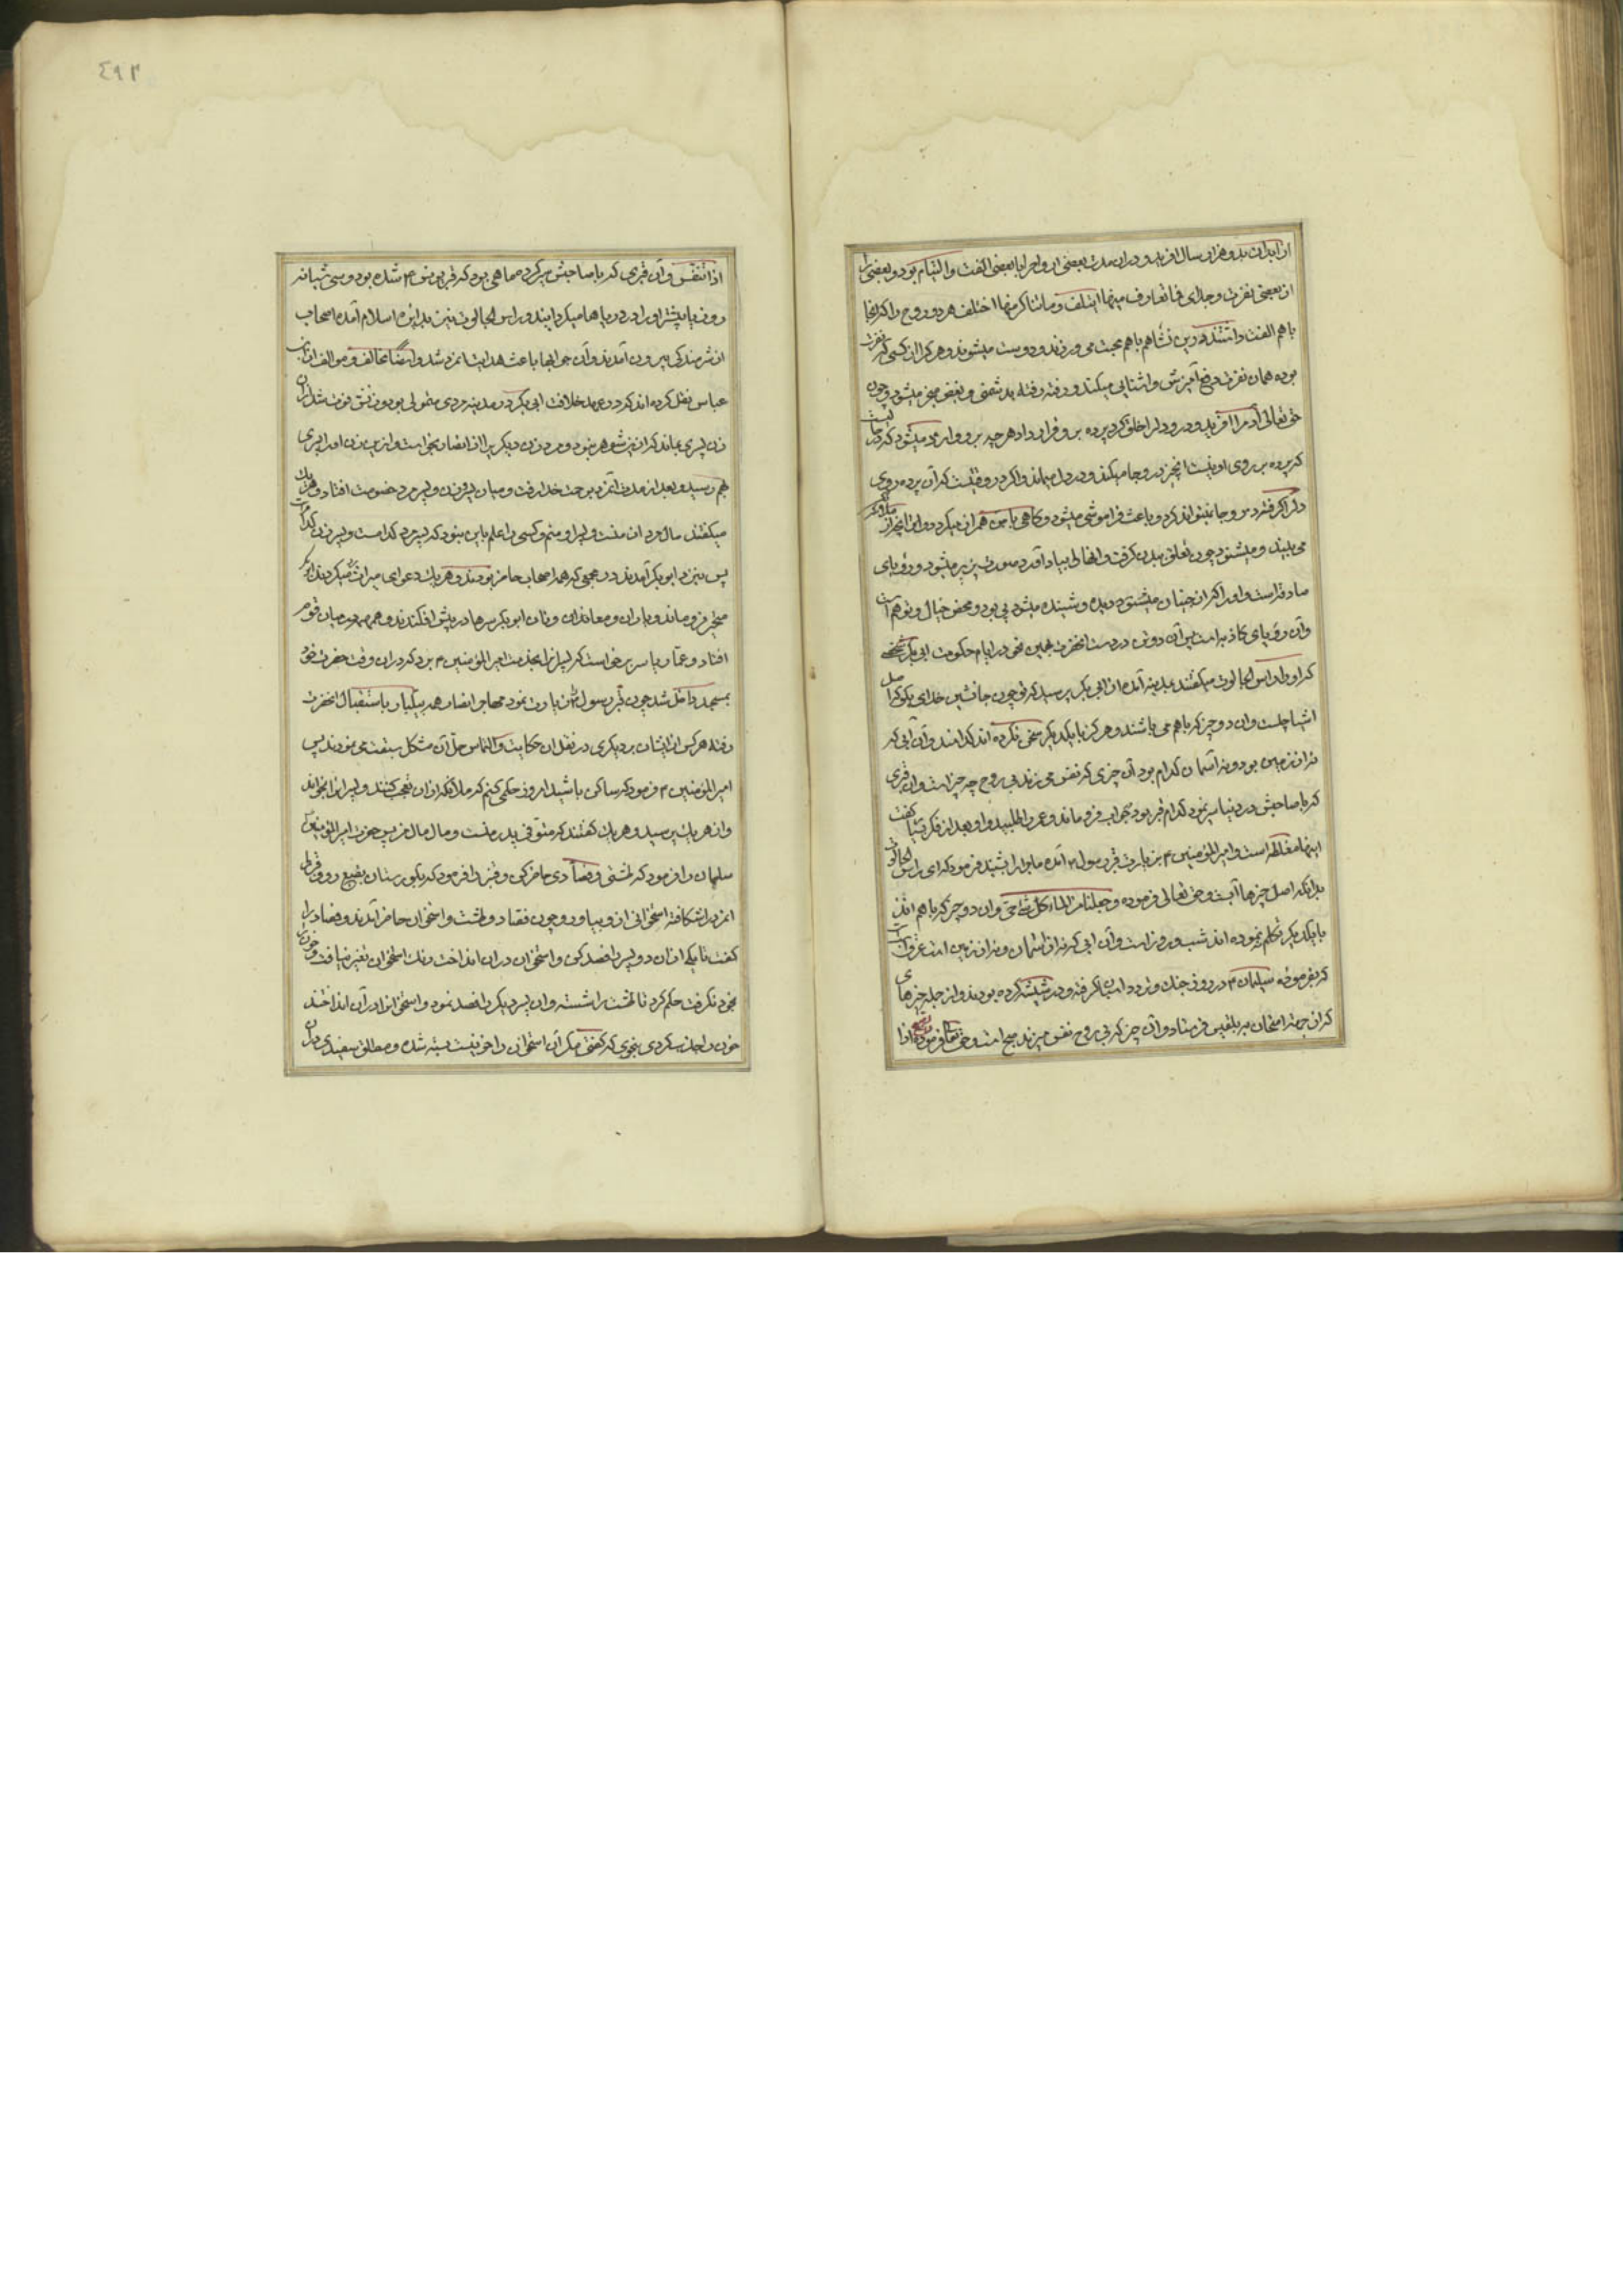 از ابدان بدو هزار سال افرید و دران مدت بعضی ارواح را با بعضی الفت و التیام بود و بعضی را
از بعضی نفرت و جدایی فما تعارف منها ایتلف و ما تناکر منها اختلف هر دو روح را که آنجا
باهم الفت داشتند درین نشاهم باهم محبت می ورزند و دوست میشوند و هر کرا از کسی که نفرت
بوده همان نفرت رفع آمیزش و اشنایی میکند و رفته رفته بدشمنی و بغض منجر میشود و چون
حق تعالی آدم را افرید و درو دل را خلق کرد پرده برو قرار داد هر چه برو وارد میشود
که پرده بر روی او نیست انچیز درو جا میکند و در دل میماند و اگر در وقتیست که آن پرده روی
دلرا گرفته درو جا نمیتواند کرد و باعث فراموشی میشود و گاهی با من همراز میگردد و انچه از ملا اعلی
می بیند و میشنود چون تعلق ببدن گرفت و انحالی بیاد آورد صورت پذیر میشود و رؤیای
صادقه است و او را اگر از چنان میشنود دیده و شنیده میشود پی بود و محض خیال و توهم است
و آن رؤیای کاذبه است پس آن دو تن در دست انحضرت همین نحو در ایام حکومت ابی بکر شخصی
که او را راس الجالوت میگفتند بمدینه آمده از ابی بکر پرسید که تو چون جانشین خدای بگو که اصل
اشیا چیست و ان دو چیز که باهم می باشند و هر گز با یکدیگر سخن نکرده اند کدامند و آن ابی که
نه از زمین بود و نه از آسمان کدام بود آن چیزی که نفس می زند بی روح چه چیز است و ان قبری
که با صاحبش در دنیا سیر نمود کدام قبر بود بجواب فرو ماند و عمر را طلبید و او بعد از فکر بسیار گفت
اینها مغلطه است و امیر المؤمنین ۴ بزیارت قبر رسول ۴ آمده ماجرا را شنید فرمود که ای راس الجالوت
بدانکه اصل چیزها آبست و حق تعالی فرموده و جعلنا من الماء کل شیء حی و ان دو چیز که باهم اند
با یکدیگر تکلم ننموده اند شب و روز است و آن ابی که نه از آسمان و نه از زمین است عرق اسب
که بفرموده سلیمان ۴ در روز جنک و تردد اسبان گرفته و در شیشه کرده بودند و از جمله چیزهای
که از جهة امتحان به بلقیس فرستاد و آن چیز که بی روح نفس میزند صبح است و حق تعالی فرموده و الصبح اذا
٤٩٢
اذا تنفس و آن قبری که با صاحبش سیر کرد ماهی بود که قبر یونس ۴ شده بود و سی شبانه
روز یا بیشتر او را در دریاها میگردانید و راس الجالوت بدایره اسلام آمده اصحاب
از شرمندگی بیرون آمدند و آن جوابها باعث هدایت انمرد شد و ایضا مخالف و موالف از ابن
عباس نقل کرده اند که در عهد خلافت ابی بکر در مدینه مردی متمولی بود و زنش فوت شد از ان
زن پسری بماند که از زن شوهر بنود و مرد زن دیگر را از انصار بخواست و از این زن او را پسری
بهم رسید و بعد از مدت انمرد برحمت خدا رفت و میان پسر زن و پسر مرد خصومت افتاد و هر یک
میگفتند مال مرد از منست و پسر او منم و کسی را علم باین بنود که پسر مرد کدامست و پسر زن کدام است
پس بنزد ابو بکر آمدند در مجمعی که همه اصحاب حاضر بودند و هر یک دعوای میراث میکردند ابو بکر
متحیر فرو ماند و یاران و معاندان و تابعان ابو بکر سرها در پیش افکندند و همهمه در میان قوم
افتاد و عمار یاسر برخاست که پسرانرا بخدمت امیر المؤمنین ۴ برد که دران وقت حضرت خود
بمسجد داخل شد چون قبر رسول را زیارت نمود مهاجر و انصار همه بیکبار باستقبال انحضرت
رفتند هر کس از ایشان بر دیگری در نقل ان حکایت و التماس حل آن مشکل سبقت می نمودند پس
امیر المؤمنین ۴ فرمود که ساکن باشید امروز حکمی کنم که ملائکه از ان تعجب کنند و پسرانرا بخواند
و از هر یک پرسید و هر یک گفتند که متوفی پدر منست و مال مال من پس حضرت امیر المؤمنین
سلمان را فرمود که طشتی و فصادی حاضر کن و قنبر را فرمود که بگورستان بقیع رو و قبر
انمرد را شکافته استخوانی از و بیاور و چون فصاد و طشت و استخوان حاضر آمدند و فصاد را
گفت تا یکی از ان دو پسر را فصد کن و استخوان دران انداخت رنک استخوان تغیر نیافت و خون
بخود نگرفت حکم کرد تا طشت را شسته و ان پسر دیگر را فصد نمود و استخوان را دران انداختند
خون را جذب کردی بنحوی که گفتی مگر آن استخوان را خونیست بسته شده و مطلق سفیدی دران